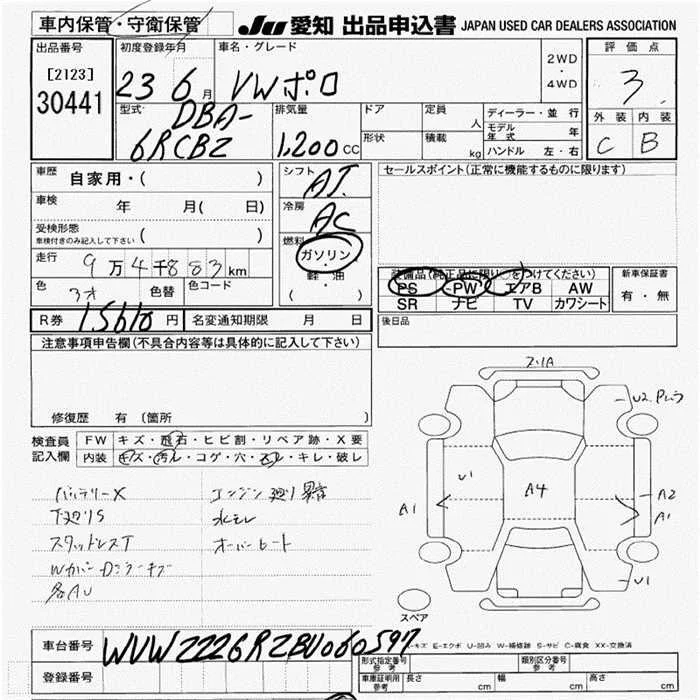 車内保管・守衛保管 JU 愛知 出品申込書 JAPAN USED CAR DEALERS ASSOCIATION
出品番号
[2123]
30441
初度登録年月
23 6月
車名・グレード
VWポロ
2WD
・
4WD
評価点
3
外装 内装
C B
型式
DBA-
6RCBZ
排気量
1,200 CC
ドア
形状
定員 人
積載 kg
ディーラー・並行
モデル年式 年
ハンドル 左・右
車歴 自家用・( )
車検 年 月( 日)
受検形態
車検付きのみ記入して下さい ( )
走行 9万4千883km
色 色替 色コード
シフト
AT.
冷房
AC
燃料
ガソリン
・
軽・油
( )
セールスポイント(正常に機能するものに限ります)
装備品(純正品に限り○をつけてください)
PS PW エアB AW
SR ナビ TV カワシート
新車保証書
有・無
R券 15610円 名変通知期限 月 日
後日品
注意事項申告欄(不具合内容等は具体的に記入して下さい)
修復歴 有 (箇所
検査員
記入欄
FW キズ・飛石・ヒビ割・リペア跡・X要
内装 キズ・汚レ・コゲ・穴・スレ・キレ・破レ
バッテリーX
下廻りS
スタッドレスT
各AU
エンジン廻り異音
水モレ
オーバーヒート
A1
U1
A4
A2
A1
U1
スペア
E-エクボ U-凹み W-補修跡 S-サビ C-腐食 XX-交換済
車台番号 WVWZZZ6RZBU060597
登録番号
型式指定番号
参考
類別区分番号
参考
車庫証明用
参考
長さ cm 幅 cm 高さ cm